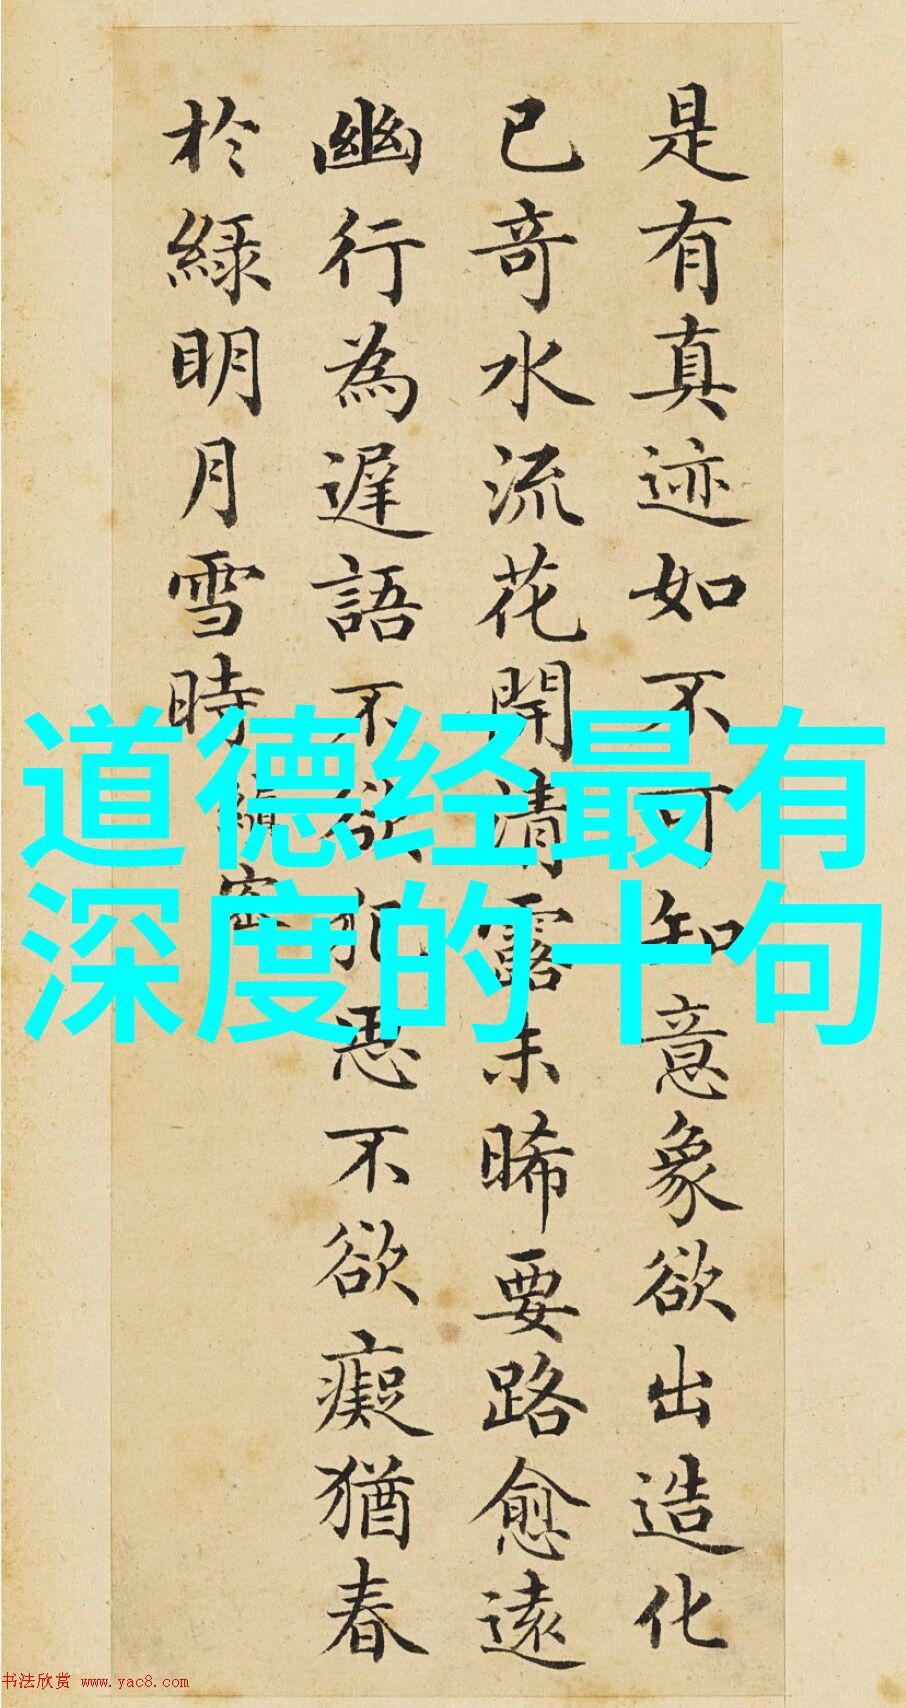 是有真迹如不可知意象欲出造化
已奇水流花開清露未晞要路愈遠
幽行為遲語不欲犯恶不欲癡猶春
於綠明月雪時 縝密
道德经最有
深度的十句
书法欣赏 www.yac8.com